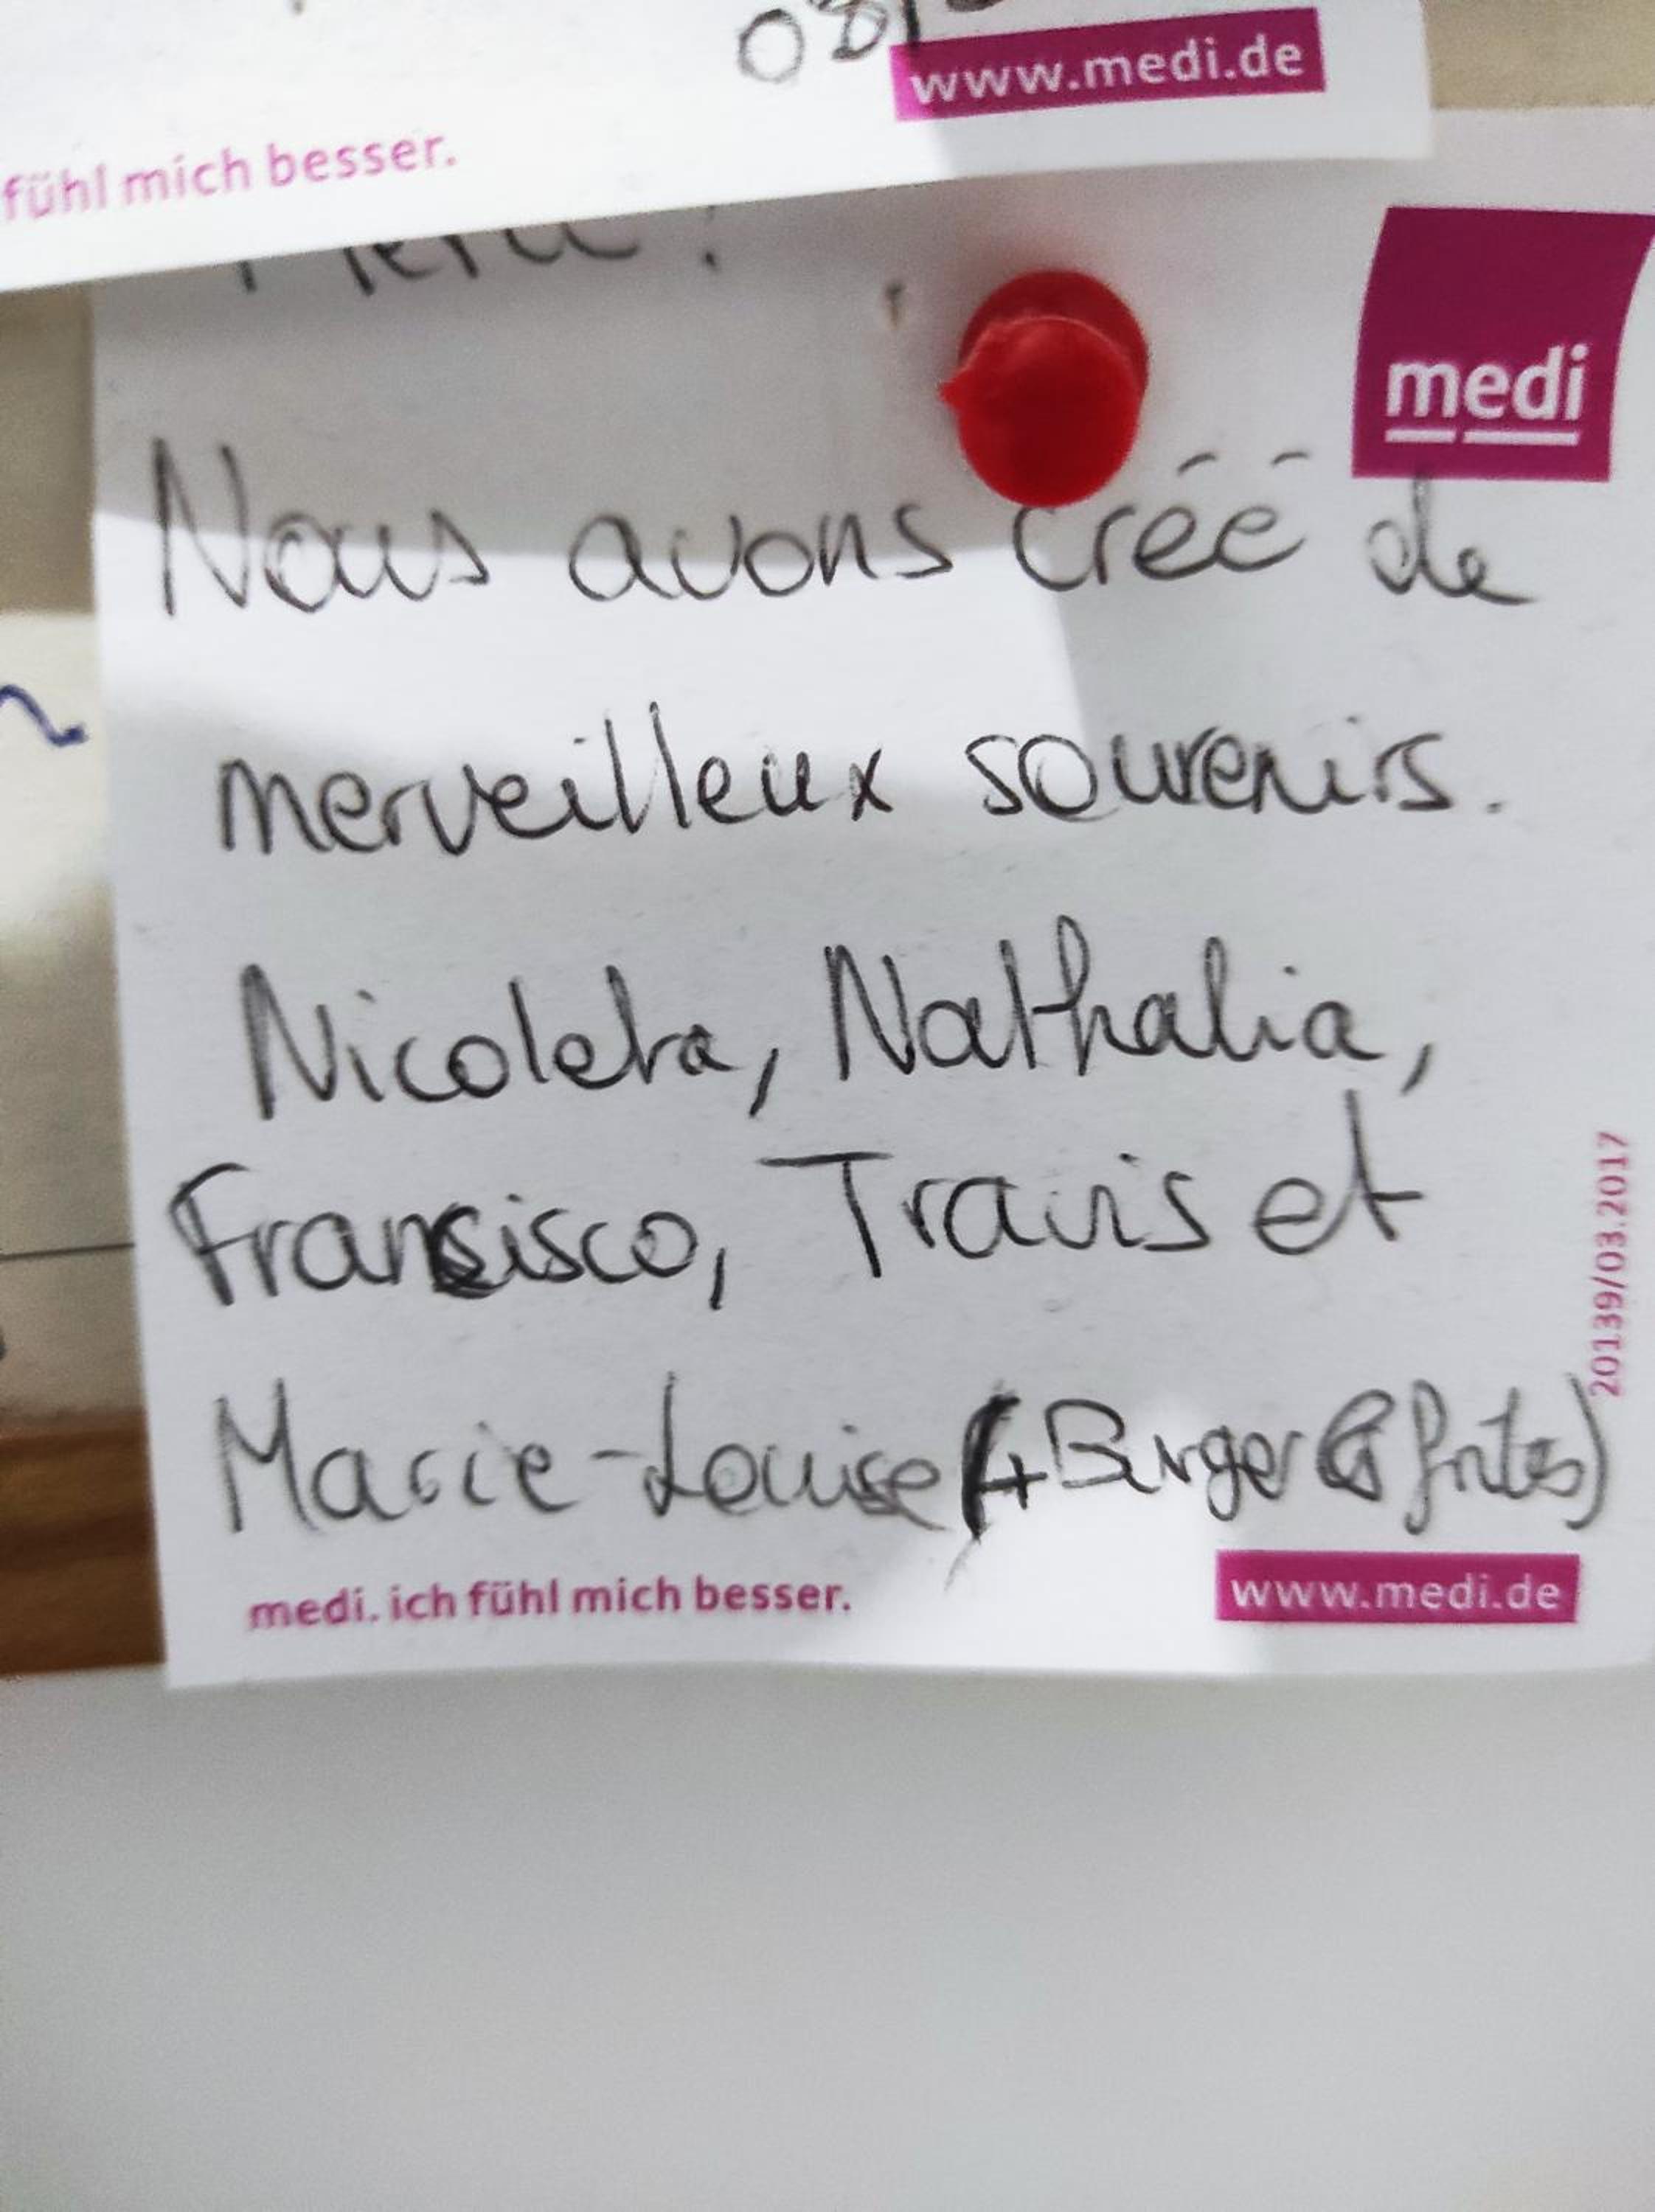 www.medi.de
fühl mich besser.
Merci!
medi
Nous avons créé de
merveilleux souvenirs.
Nicoleta, Nathalia,
Fransisco, Travis et
Marie-Louise (+ Burger & frites)
medi. ich fühl mich besser.
www.medi.de
20139/03.2017